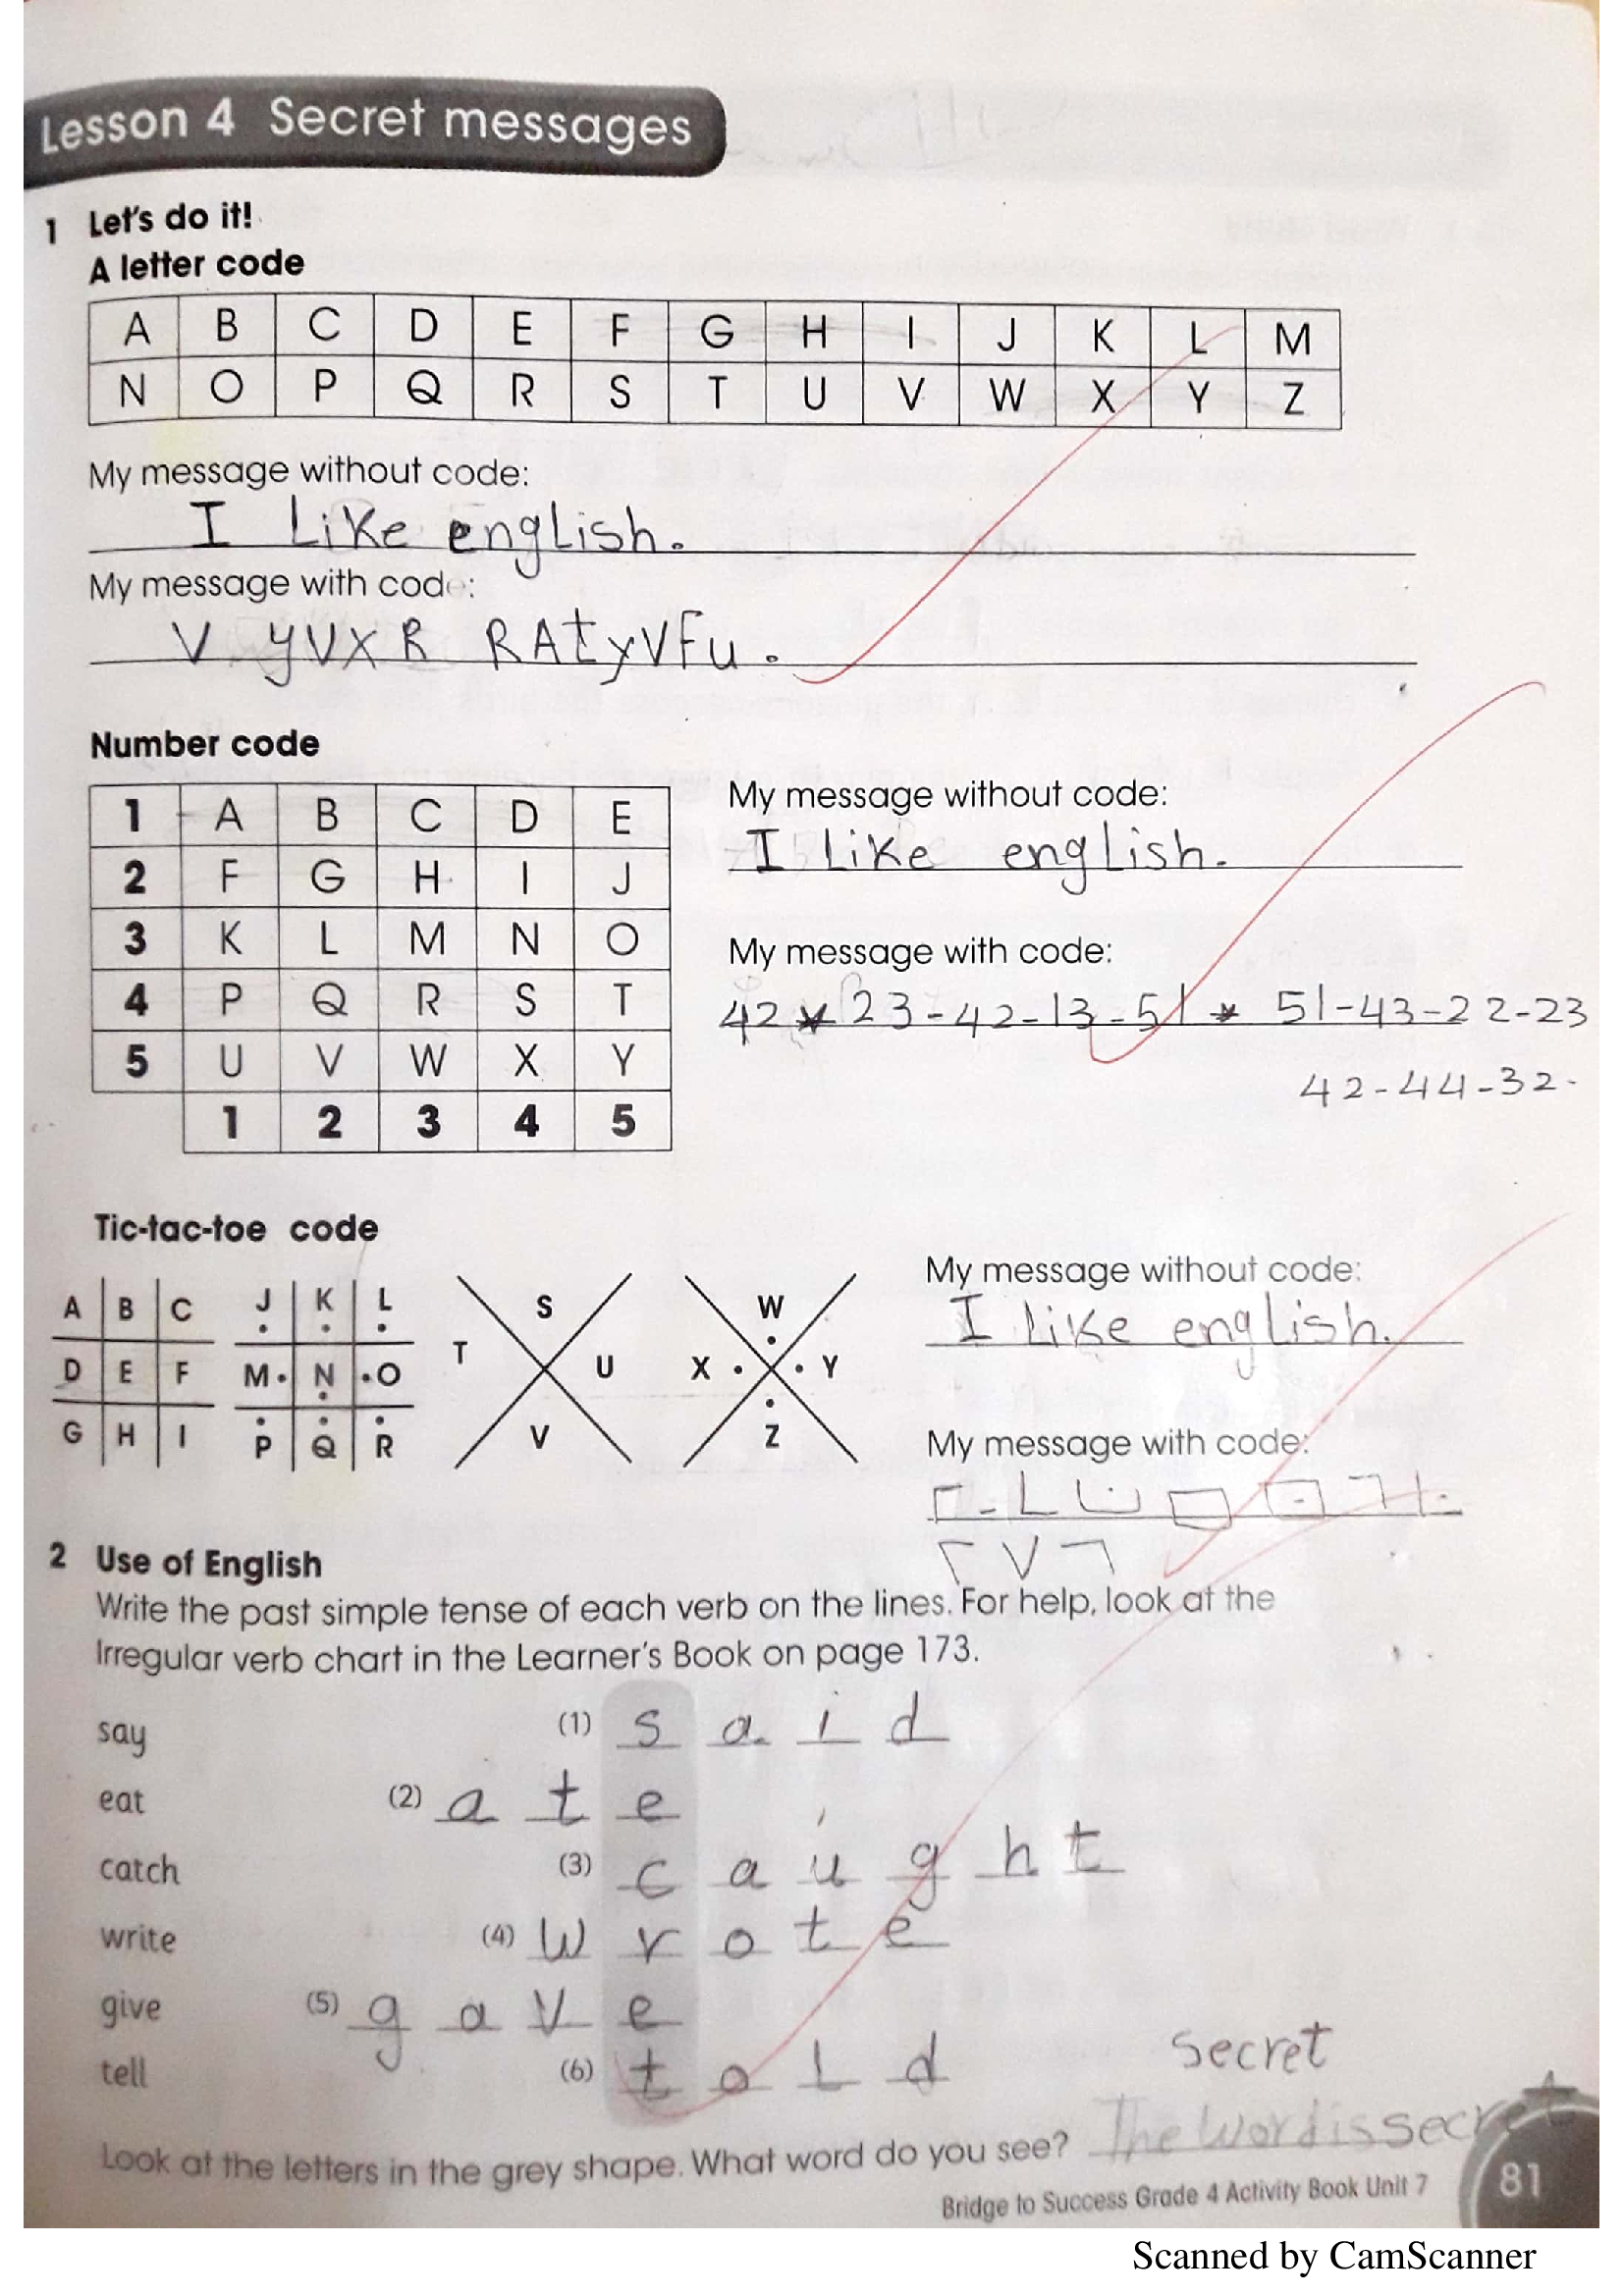 Lesson 4 Secret messages
1 Let's do it!
A letter code
A B C D E F G H I J K L M
N O P Q R S T U V W X Y Z
My message without code:
I Like english.
My message with code:
V yVXR RAtyVFu.
Number code
1 A B C D E
2 F G H I J
3 K L M N O
4 P Q R S T
5 U V W X Y
1 2 3 4 5
My message without code:
I Like english.
My message with code:
42 * 23-42-13-51 * 51-43-22-23
42-44-32-
Tic-tac-toe code
A B C J K L S W
D E F M N O T U X Y
G H I P Q R V Z
My message without code:
I like english.
My message with code:
2 Use of English
Write the past simple tense of each verb on the lines. For help, look at the
Irregular verb chart in the Learner's Book on page 173.
say (1) s a i d
eat (2) a t e
catch (3) c a u g h t
write (4) w r o t e
give (5) g a v e
tell (6) t o l d
secret
Look at the letters in the grey shape. What word do you see? The Word is secret
Bridge to Success Grade 4 Activity Book Unit 7 81
Scanned by CamScanner